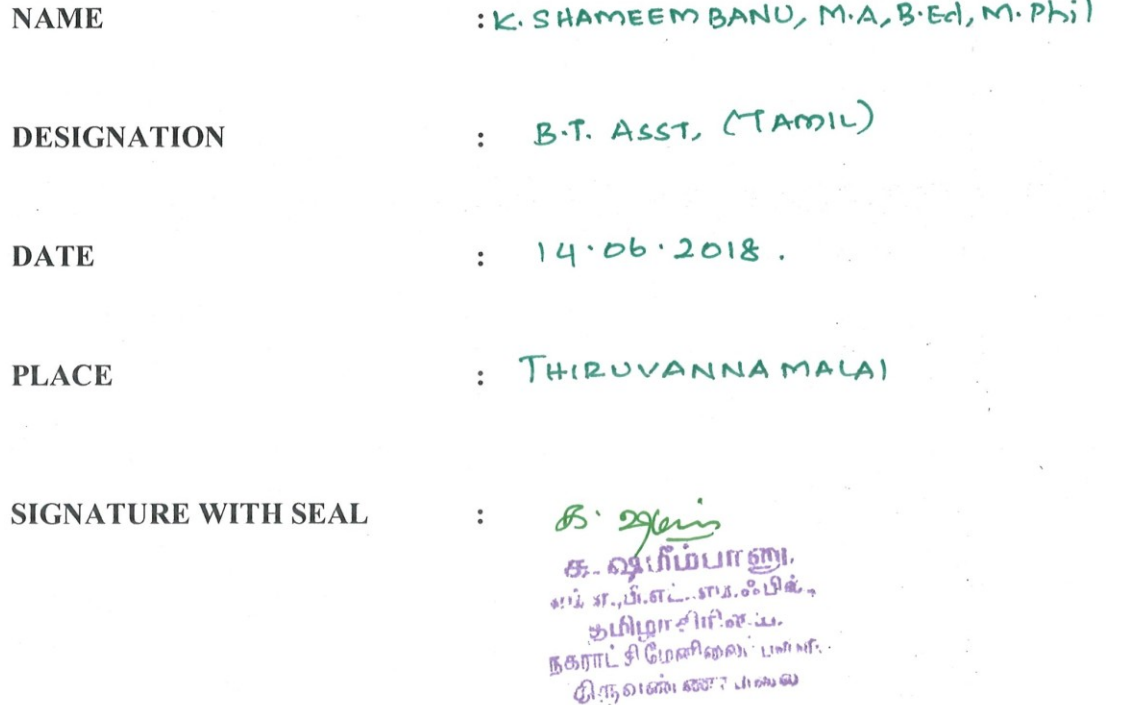 NAME : K. SHAMEEM BANU, M.A, B.Ed, M.Phil
DESIGNATION : B.T. ASST, (TAMIL)
DATE : 14.06.2018.
PLACE : THIRUVANNAMALAI
SIGNATURE WITH SEAL : க.
க. ஷமீம்பானு,
எம்.ஏ.,பி.எட்.,எம்.ஃபில்.,
தமிழாசிரியை,
நகராட்சி மேனிலைப் பள்ளி,
திருவண்ணாமலை